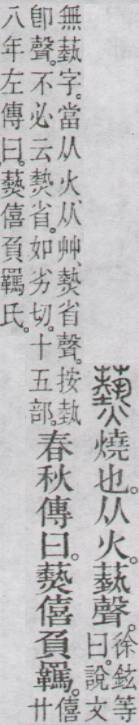 爇燒也。从火。蓺聲。徐鉉等曰。說文
無蓺字。當从火、从艸、熱省聲。按埶
卽聲。不必云熱省。如劣切。十五部。
春秋傳曰。爇僖負羈。僖廿
八年左傳曰。爇僖負羈氏。